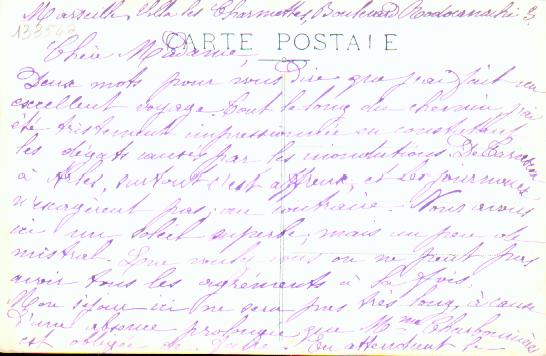 Marseille, Villa les Charmettes, Boulevard
133543
CARTE POSTALE
Chère Madame,
Deux mots pour vous dire que j'ai fait un
excellent voyage. Tout le long du chemin j'ai
été tristement impressionnée en constatant
les dégats causés par les inondations. De
à Arles, surtout c'est affreux, et les journaux
n'exagèrent pas, au contraire. Nous avons
ici un soleil superbe, mais un peu de
mistral. Que voulez vous on ne peut pas
avoir tous les agréments à la fois.
Mon séjour ici ne sera pas très long, à cause
d'une absence prolongée que Mme
est obligée de faire. En attendant le